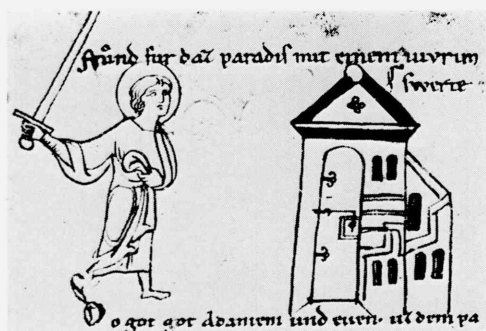 stuͦnd fur daz paradis mit einem viurim
swerte
o got got adamem und even. uz dem pa